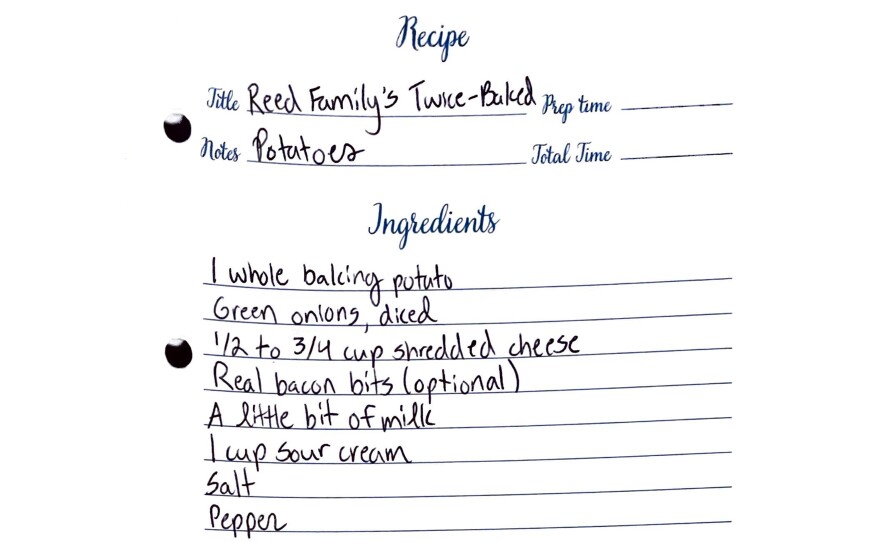 Recipe
Title Reed Family's Twice-Baked Prep time
Notes Potatoes Total Time
Ingredients
1 whole baking potato
Green onions, diced
1/2 to 3/4 cup shredded cheese
Real bacon bits (optional)
A little bit of milk
1 cup sour cream
Salt
Pepper